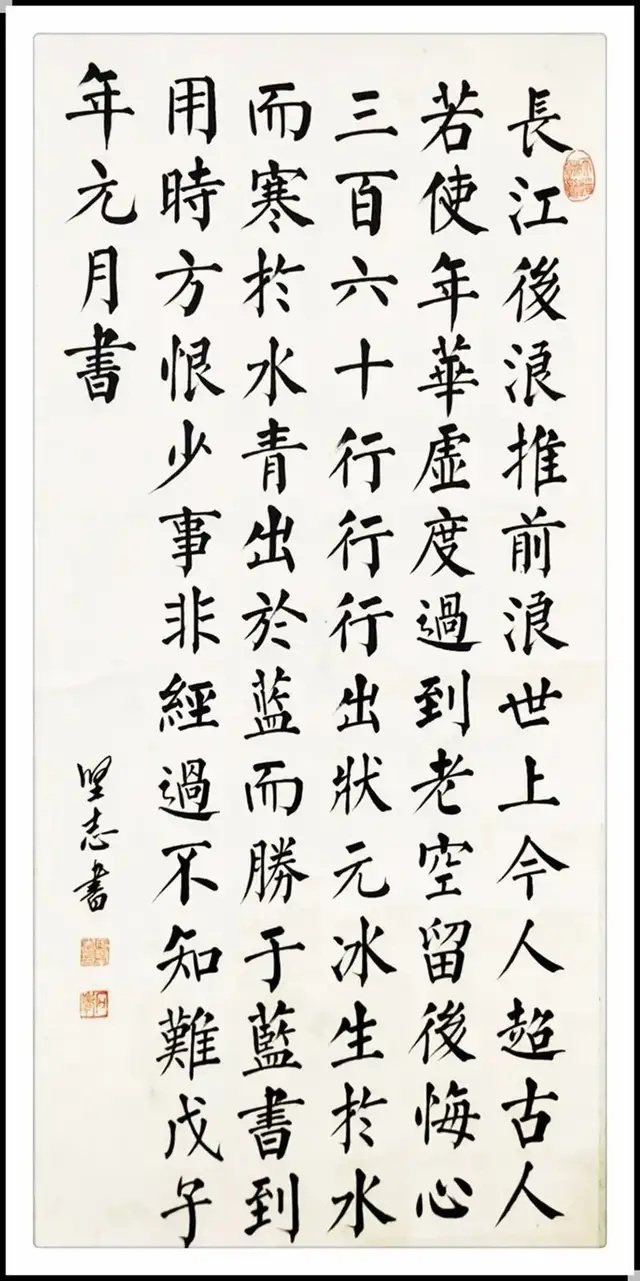 長江後浪推前浪世上今人超古人
若使年華虚度過到老空留後悔心
三百六十行行行出狀元冰生於水
而寒於水青出於蓝而勝于藍書到
用時方恨少事非經過不知難戊子
年元月書
坚志書